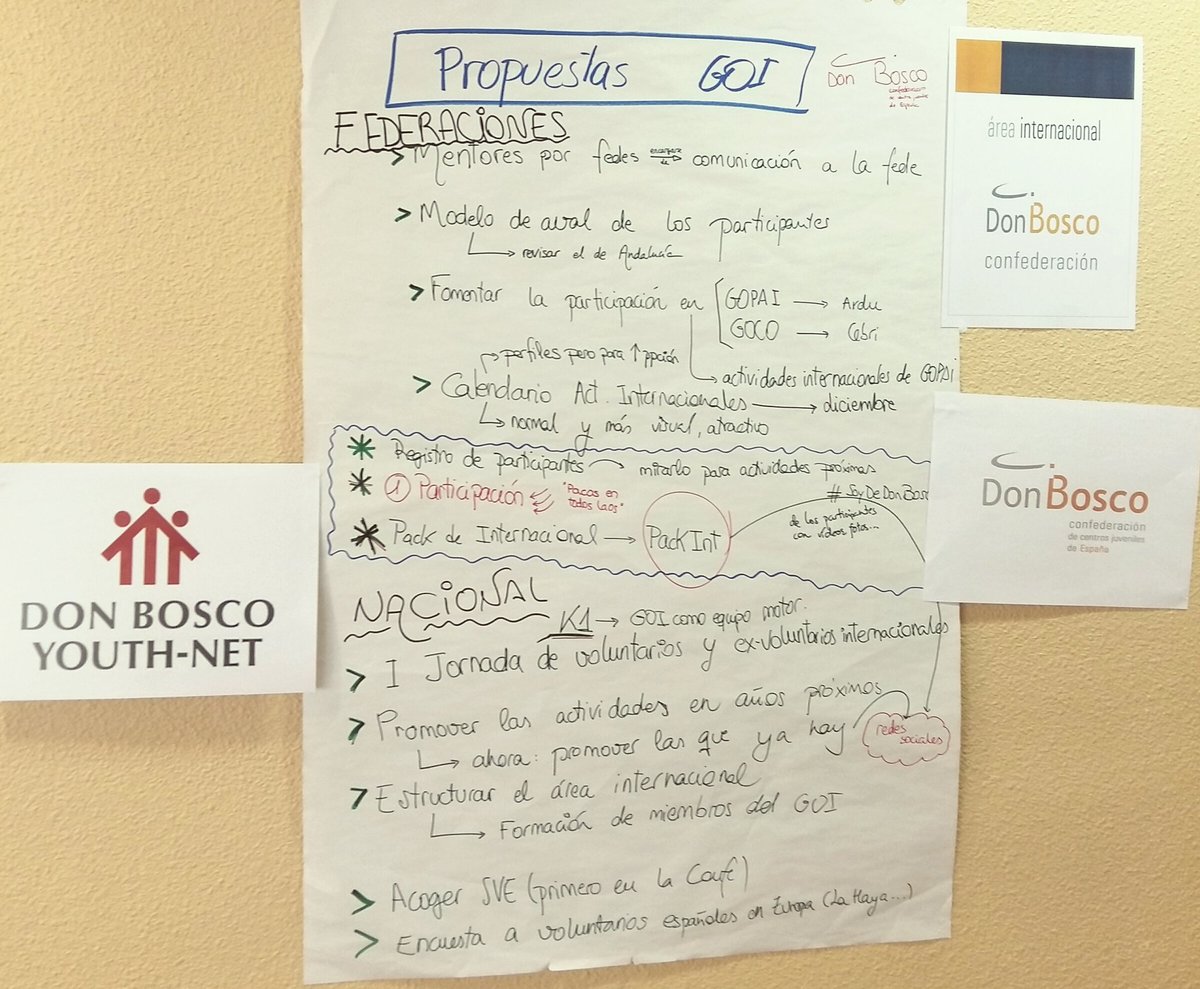 Propuestas GOI
Don Bosco
confederación
de centros juveniles
de España
FEDERACIONES
> Mentores por fedes encargarse de comunicación a la fede
> Modelo de aval de los participantes
revisar el de Andalucía
> Fomentar la participación en
GOPAI → Ardu
GOCO → Cebri
actividades internacionales de GOPAI
perfiles pero para ↑ ppción
> Calendario Act. Internacionales → diciembre
normal y más visual, atractivo
* Registro de participantes → mirarlo para actividades próximas
* 1 Participación "Pocos en todos laos"
# SoyDeDonBosc
de los participantes
con vídeos fotos...
* Pack de Internacional → Pack Int
NACIONAL
K1 → GOI como equipo motor.
> I Jornada de voluntarios y ex-voluntarios internacionales
> Promover las actividades en años próximos
ahora: promover las que ya hay
redes
sociales
> Estructurar el área internacional
Formación de miembros del GOI
> Acoger SVE (primero en la Confe)
> Encuesta a voluntarios españoles en Europa (La Haya...)
DON BOSCO
YOUTH-NET
área internacional
DonBosco
confederación
DonBosco
confederación
de centros juveniles
de España